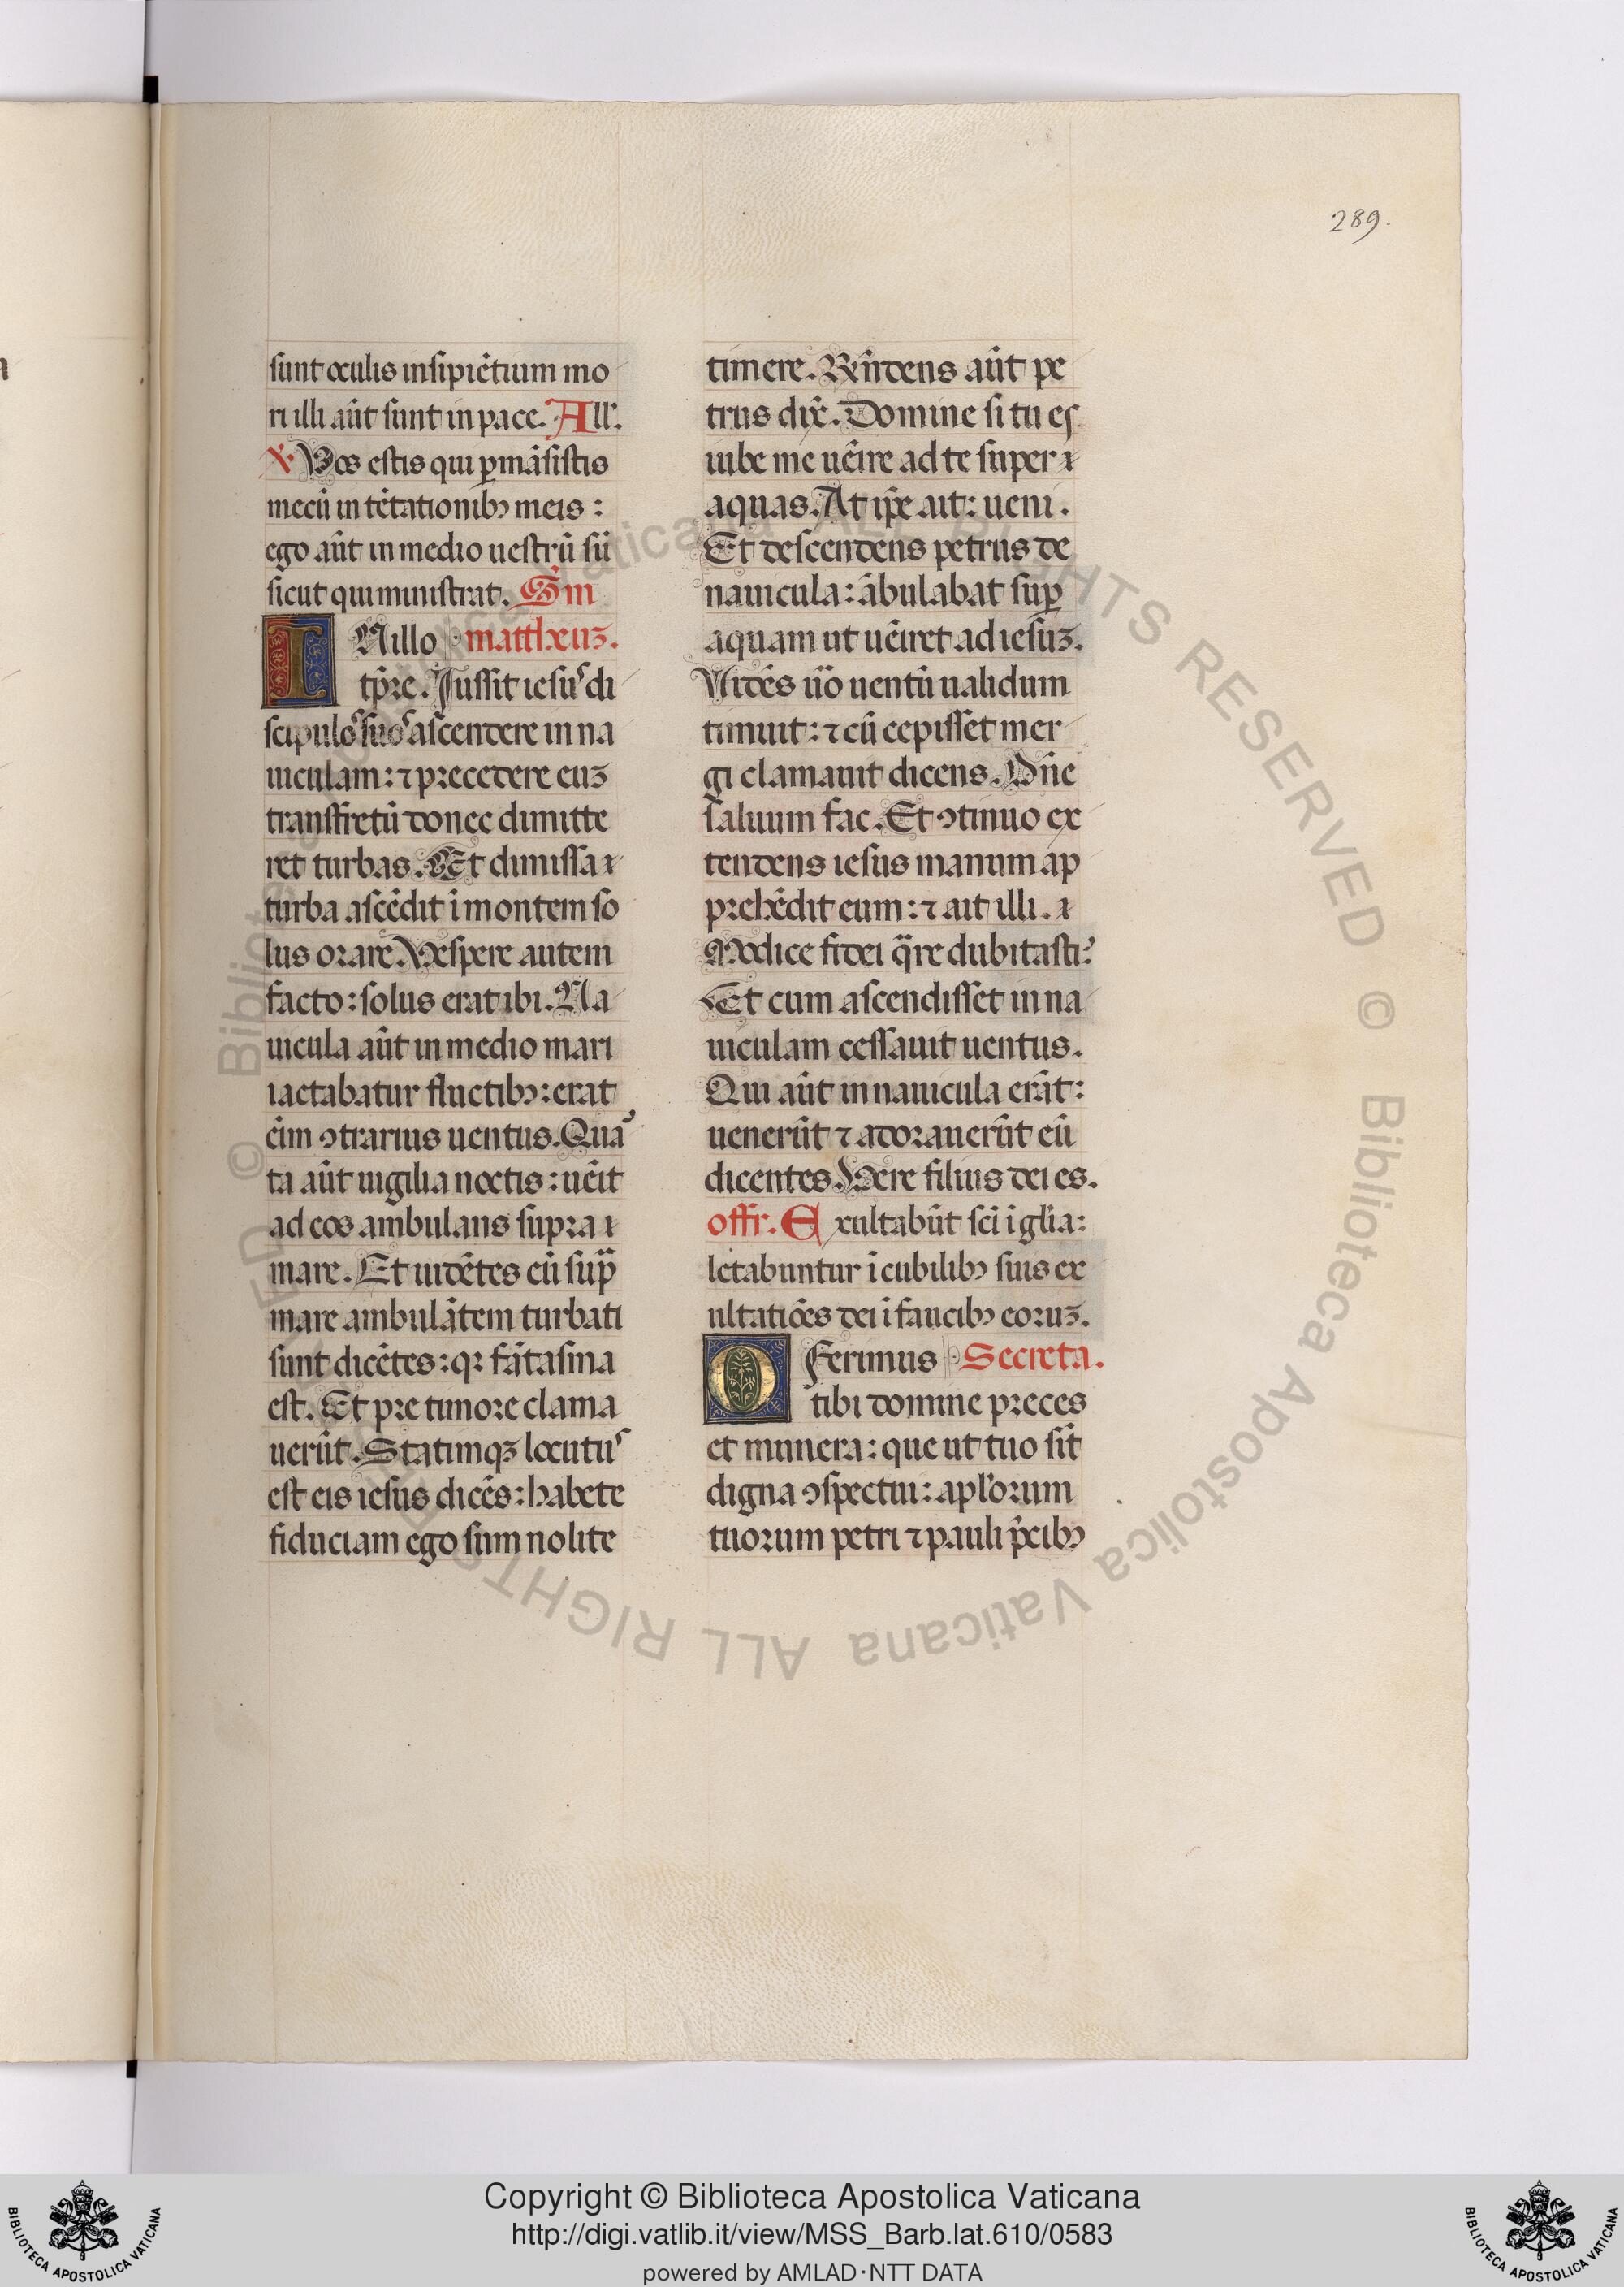 289.
sunt oculis insipiētium mo
ri illi aūt sunt in pace. All'.
V. Vos estis qui ꝑmāsistis
mecū in tētationibꝫ meis :
ego aūt in medio uestrū sū
sicut qui ministrat. Sm
IN illo mattheuꝫ.
tp̄re. Iussit iesus di
scipulos suos ascendere in na
uiculam: ⁊ precedere euꝫ
transfretū donec dimitte
ret turbas. Et dimissa
turba ascēdit ī montem so
lus orare. Vespere autem
facto: solus erat ibi. Na
uicula aūt in medio mari
iactabatur fluctibꝫ: erat
ēim ↄtrarius uentus. Qua
ta aūt uigilia noctis: uēit
ad eos ambulans supra
mare. Et uidētes eū sup
mare ambulātem turbati
sunt dicētes: qꝛ fātasma
est. Et pre timore clama
uerūt. Statimqꝫ locutus
est eis iesus dicēs: habete
fiduciam ego sum nolite
timere. Rn̄dens aūt pe
trus dix̄. Domine si tu es
iube me uēire ad te super
aquas. At ip̄e ait: ueni.
Et descendens petrus de
nauicula: ābulabat suꝑ
aquam ut uēiret ad iesuꝫ.
Vidēs uo uentū ualidum
timuit: ⁊ cū cepisset mer
gi clamauit dicens. Dn̄e
saluum fac. Et ↄtinuo ex
tendens iesus manum ap
prehēdit eum: ⁊ ait illi.
Modice fidei qre dubitasti?
Et cum ascendisset in na
uiculam cessauit uentus.
Qui aūt in nauicula erāt:
uenerūt ⁊ adorauerūt eū
dicentes. Vere filius dei es.
offr. Exultabūt sc̄i ī gl̄ia:
letabuntur ī cubilibꝫ suis ex
ultatiōes dei ī faucibꝫ eoruꝫ.
OFferimus Secreta.
tibi domine preces
et munera: que ut tuo sīt
digna ↄspectui: apl'orum
tuorum petri ⁊ pauli p̄cibꝫ
© Biblioteca Apostolica Vaticana ALL RIGHTS RESERVED © Biblioteca Apostolica Vaticana ALL RIGHTS RESERVED
Copyright © Biblioteca Apostolica Vaticana
http://digi.vatlib.it/view/MSS_Barb.lat.610/0583
powered by AMLAD·NTT DATA
BIBLIOTECA APOSTOLICA VATICANA
BIBLIOTECA APOSTOLICA VATICANA